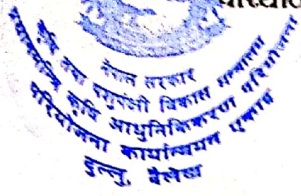 नेपाल सरकार
कृषि तथा पशुपंक्षी विकास मन्त्रालय
प्रधानमन्त्रि कृषि आधुनिकिकरण परियोजना
परियोजना कार्यान्वयन एकाइ
दुल्लु, दैलेख